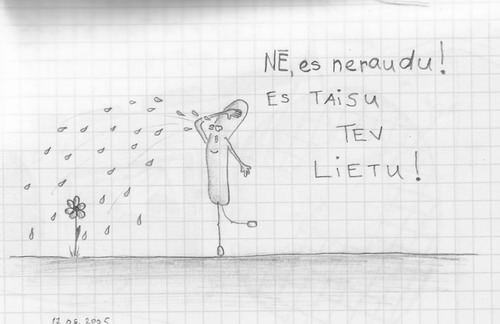 NĒ, es neraudu!
Es TAiSU
TEV
LiETU!
17.08.2025